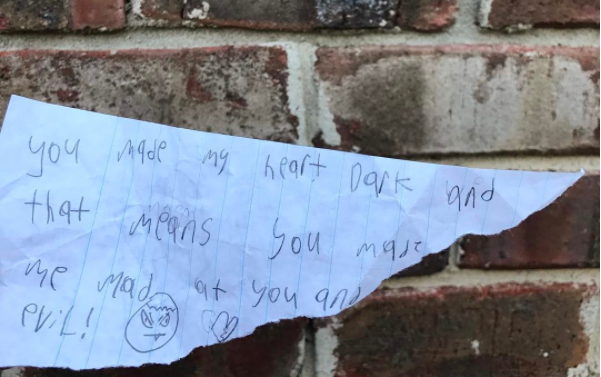 you made my heart Dark and
that means you made
me mad at you and
evil!